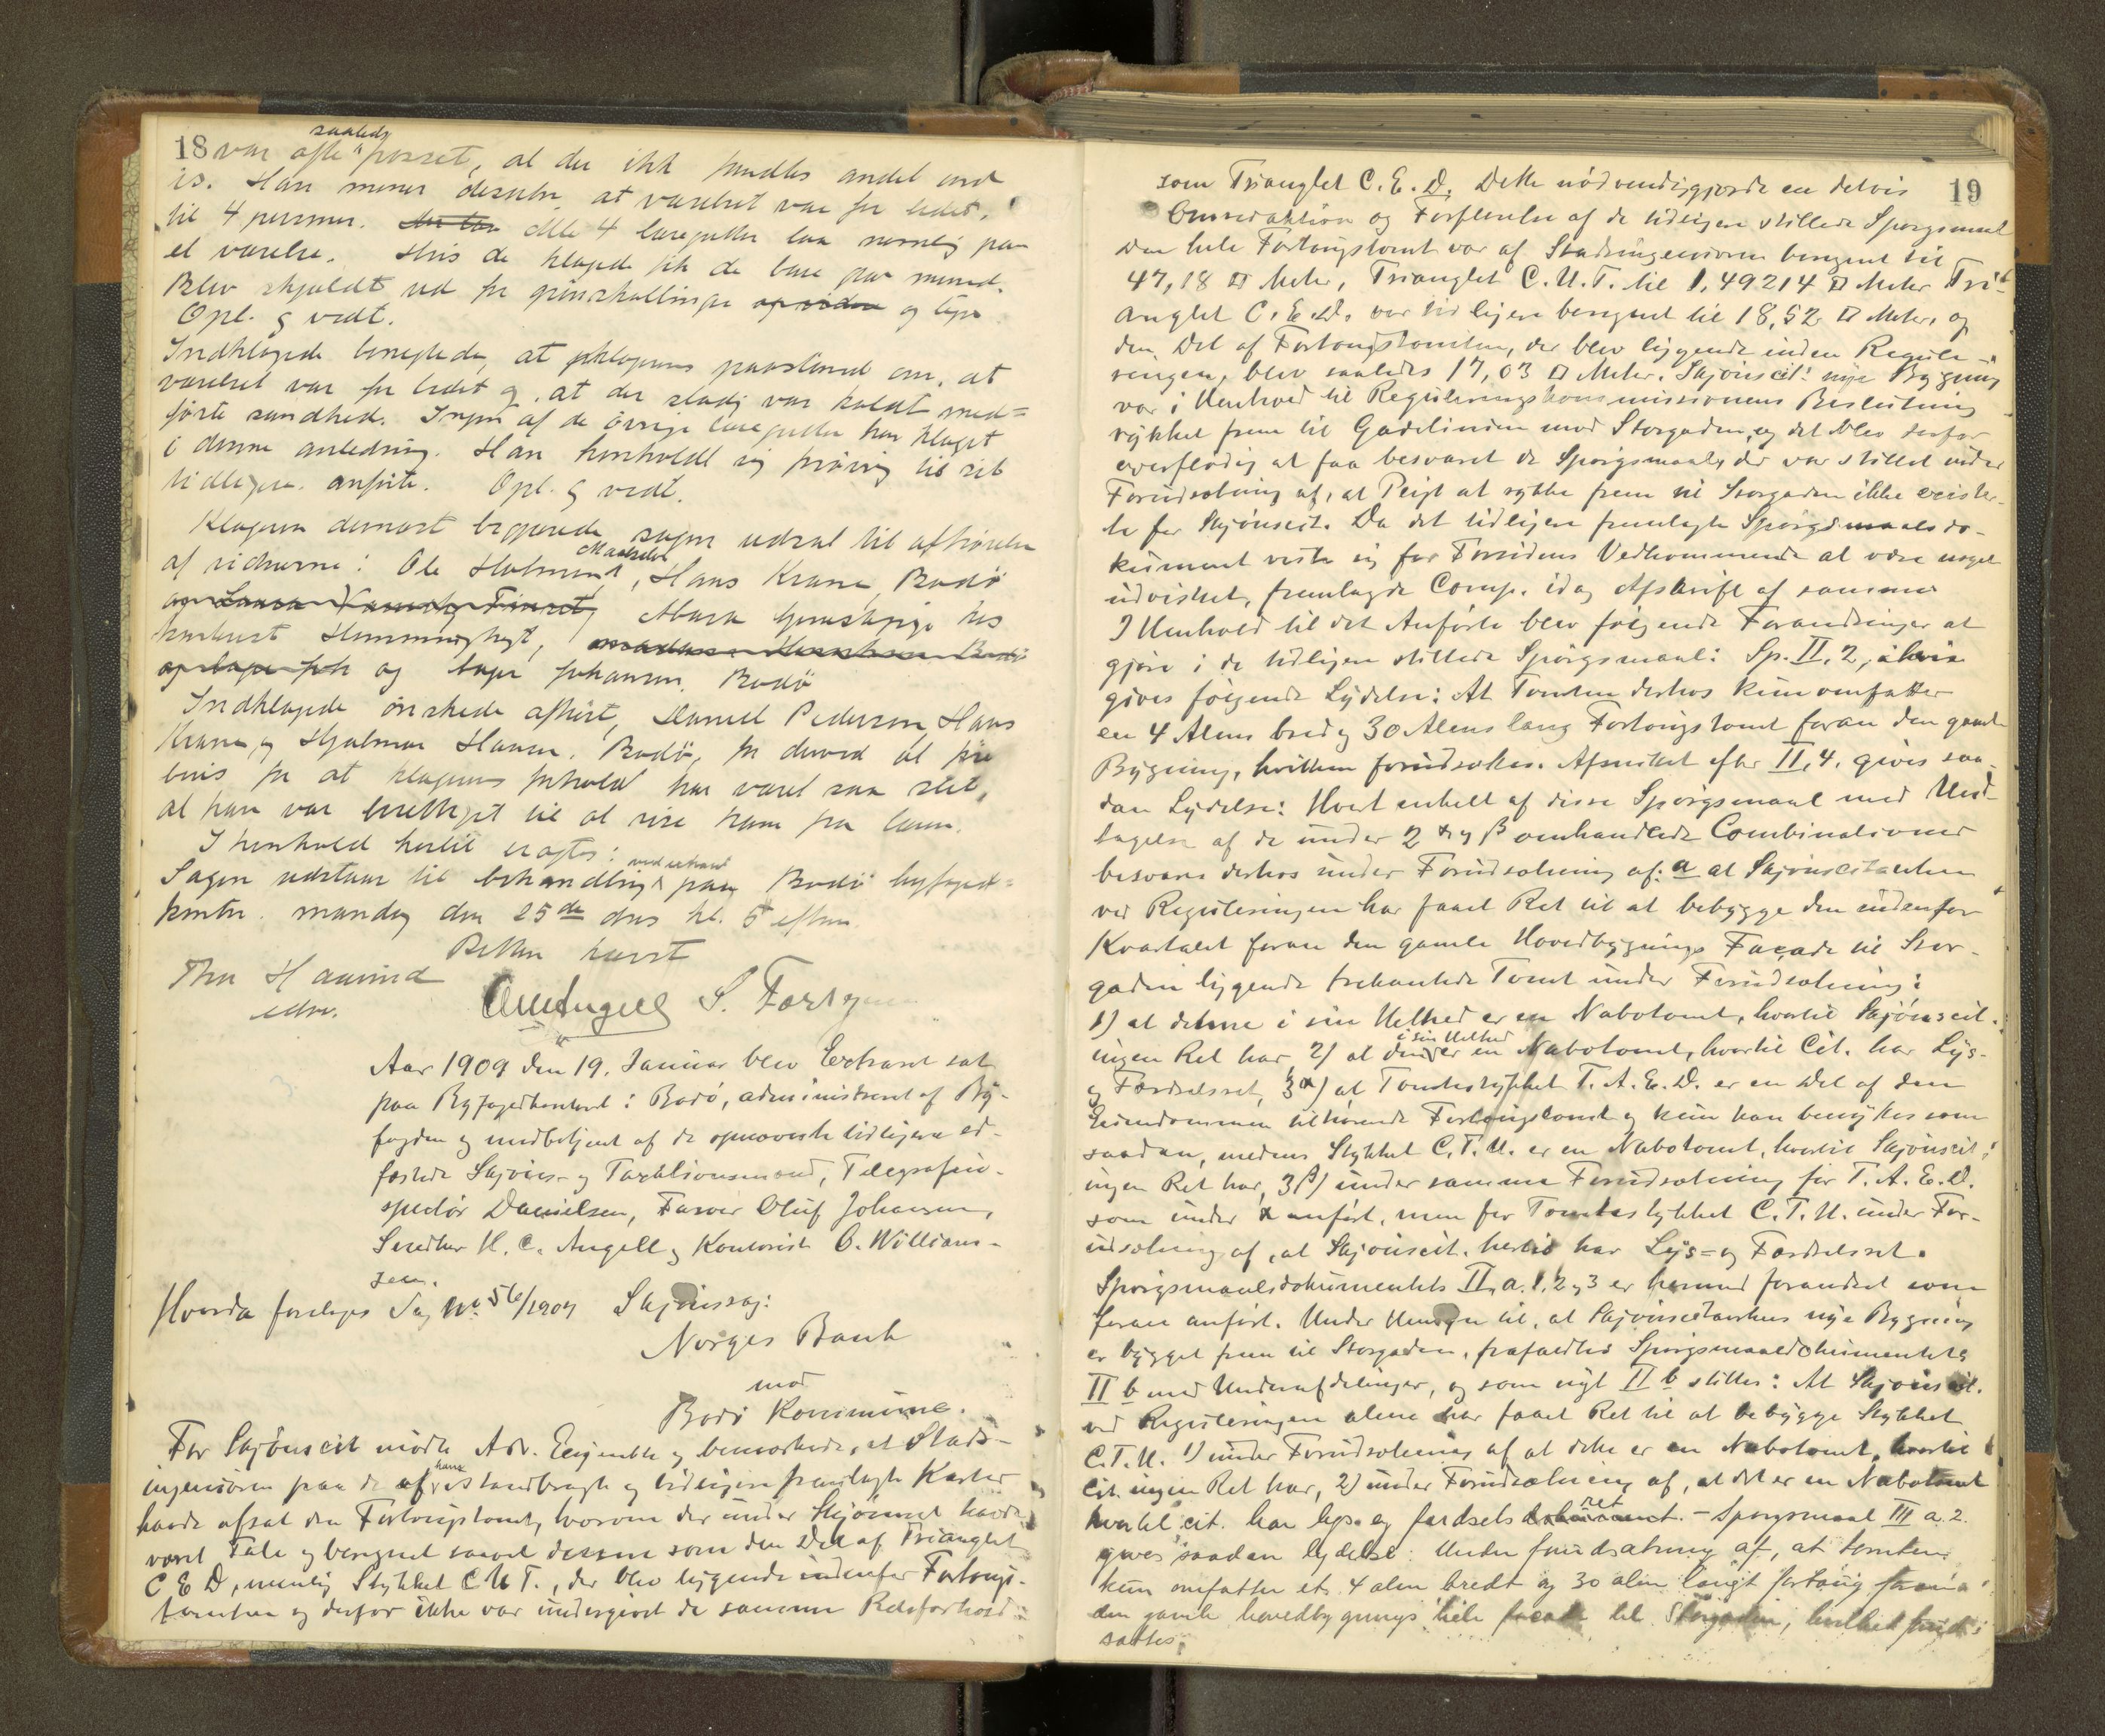 18 var ofte saaledes passet, at der ikke fandtes andet end
is. Han mener desuten at værelset var for lidet
til 4 personer. Alle 4 læregutter laa nemlig paa
et værelse. Hvis de klaget fik de bare paa mund.
Blev skjældt ud for grinskallinger og lign
Opl. g vedt.
Indklagede benegtede, at klagerens paastand om, at
værelset var for lidet og at der stadig var koldt med=
førte sandhed. Ingen af de øvrige læregutter har klaget
i denne anledning. Han henholdt sig forøvrig til sit
tidligere anførte. Opl. g vedt.
Klageren dernæst begjærede sagen udsat til afhørelse
af vidnerne: Ole Holmen, Hans Krane, Bodø
Hansine Hemmingshyt,
og Inger Johansen, Bodø
Indklagede ønskede afhørt, Daniel Pedersen, Hans
Krane og Hjalmar Hansen, Bodø, for derved at føre
bevis for at klagerens forhold har været saa slet,
at han var berettiget til at vise ham fra læren.
I henhold hertil vedtages:
Sagen udstaar til behandling ved extraret paa Bodø byfoged=
kontor mandag den 25de ds kl. 5 eftm.
Retten hævet
Thv Haavind
edsv.
Aar 1909 den 19. Januar blev Extraret sat
paa Byfogedkontoret i Bodø, administreret af By-
fogden og medbetjent af de opnævnte tidligere ed-
fæstede Skjøns- og Taxtionsmænd, Telegrafin-
spektør Danielsen, Farver Oluf Johansen,
Snedker H. C. Angell og Kontorist O. William-
sen.
Hvorda foretoges Sag No 56/1907 Skjønssag:
Norges Bank
mod
Bodø Kommune.
For Skjønscit mødte Adv. og bemærkede, at Stads-
ingeniøren paa de af ham istandbragte og tidligere fremlagte Karter
havde afsat den Fortougstomt, hvorom der under Skjønnet havde
været Tale og beregnet saavel denne som den Del af Trianglet
C E D, nemlig Stykket C U T., der blev liggende udenfor Fortougs-
tomten og derfor ikke var undergivet de samme Retsforhold
19
som Trianglet C. E. D. Dette nødvendiggjorde en delvis
Omredaktion og Forflerelse af de tidligere stillede Spørgsmaal
Den hele Fortougstomt var af Stadsingeniøren beregnet til
47,18 □ Meter, Trianglet C. U. T. til 1,49214 □ Meter Tri-
anglet C. E. D. var tidligere beregnet til 18,52 □ Meter, og
den Del af Fortougstomten, der blev liggende inden Regule-
ringen, blev saaledes 17,03 □ Meter. Skjønscit: nye Bygning
var i Henhold til Reguleringskommissionens Beslutning
rykket frem til Gadelinien mod Storgaden, og det blev derfor
overflødig at faa besvaret de Spørgsmaal, der var stillet under
Forudsætning af, at Pligt at rykke frem til Storgaden ikke exister-
te for Skjønscit. Da det tidligere fremlagte Spørgsmaalsdo-
kument viste sig for Forsidens Vedkommende at være noget
udvisket, fremlagde Comp. idag Afskrift af samme
I Henhold til det Anførte blev følgende Forandringer at
gjøre i de tidligere stillede Spørgsmaal: Sp. II. 2,
gives følgende Lydelse: At Tomten derhos kun omfatter
en 4 Alens bred og 30 Alens lang Fortougstomt foran den gamle
Bygning, hvilken forudsættes. Afsnittet efter II. 4. gives saa-
dan Lydelse: Hvert enkelt af disse Spørgsmaal med Und-
tagelse af de under 2 α og β omhandlede Combinationer
besvares derhos under Forudsætning af: a at Skjønscitanten
ved Reguleringen har faaet Ret til at bebygge den indenfor
Kvartalet foran den gamle Hovedbygnings Façade til Stor-
gaden liggende trekantede Tomt under Forudsætning:
1) at denne i sin Helhed er en Nabotomt, hvortil Skjønscit.
ingen Ret har 2) at den i sin Helhed er en Nabotomt, hvortil Cit. har Lys-
og Færdselsret, 3α) at Tomtestykket T. A. E. D. er en Del af den
Eiendommen tilhørende Fortougstomt og kun kan benyttes som
saadan, medens Stykket C. T. U. er en Nabotomt, hvortil Skjønscit
ingen Ret har, 3β) under samme Forudsætning for T. A. E. D.
som under α anført, men for Tomtestykket C. T. U. under For-
udsætning af, at Skjønscit. hertil har Lys= og Færdselsret.
Spørgsmaalsdokumentets II, a. 1, 2 og 3 er hermed forandret som
foran anført. Under Hensyn til, at Skjønscitantens nye Bygning
er bygget frem til Storgaden, frafaldtes Spørgsmaaldokumentets
II b med Underafdelinger, og som nyt II b stilles: At Skjønscit.
ved Reguleringen alene har faaet Ret til at bebygge Stykket
C. T. U. 1) under Forudsætning af at dette er en Nabotomt, hvortil
Cit. ingen Ret har, 2) under Forudsætning af, at det er en Nabotomt
hvortil cit. har lys- og færdselsret. - Spørgsmaal III a. 2.
gives saadan lydelse: Under forudsætning af, at tomten
kun omfatter et 4 alen bredt og 30 alen langt fortoug foran
den gamle hovedbygnings hele facade til Storgaden, hvilket forud-
sættes.